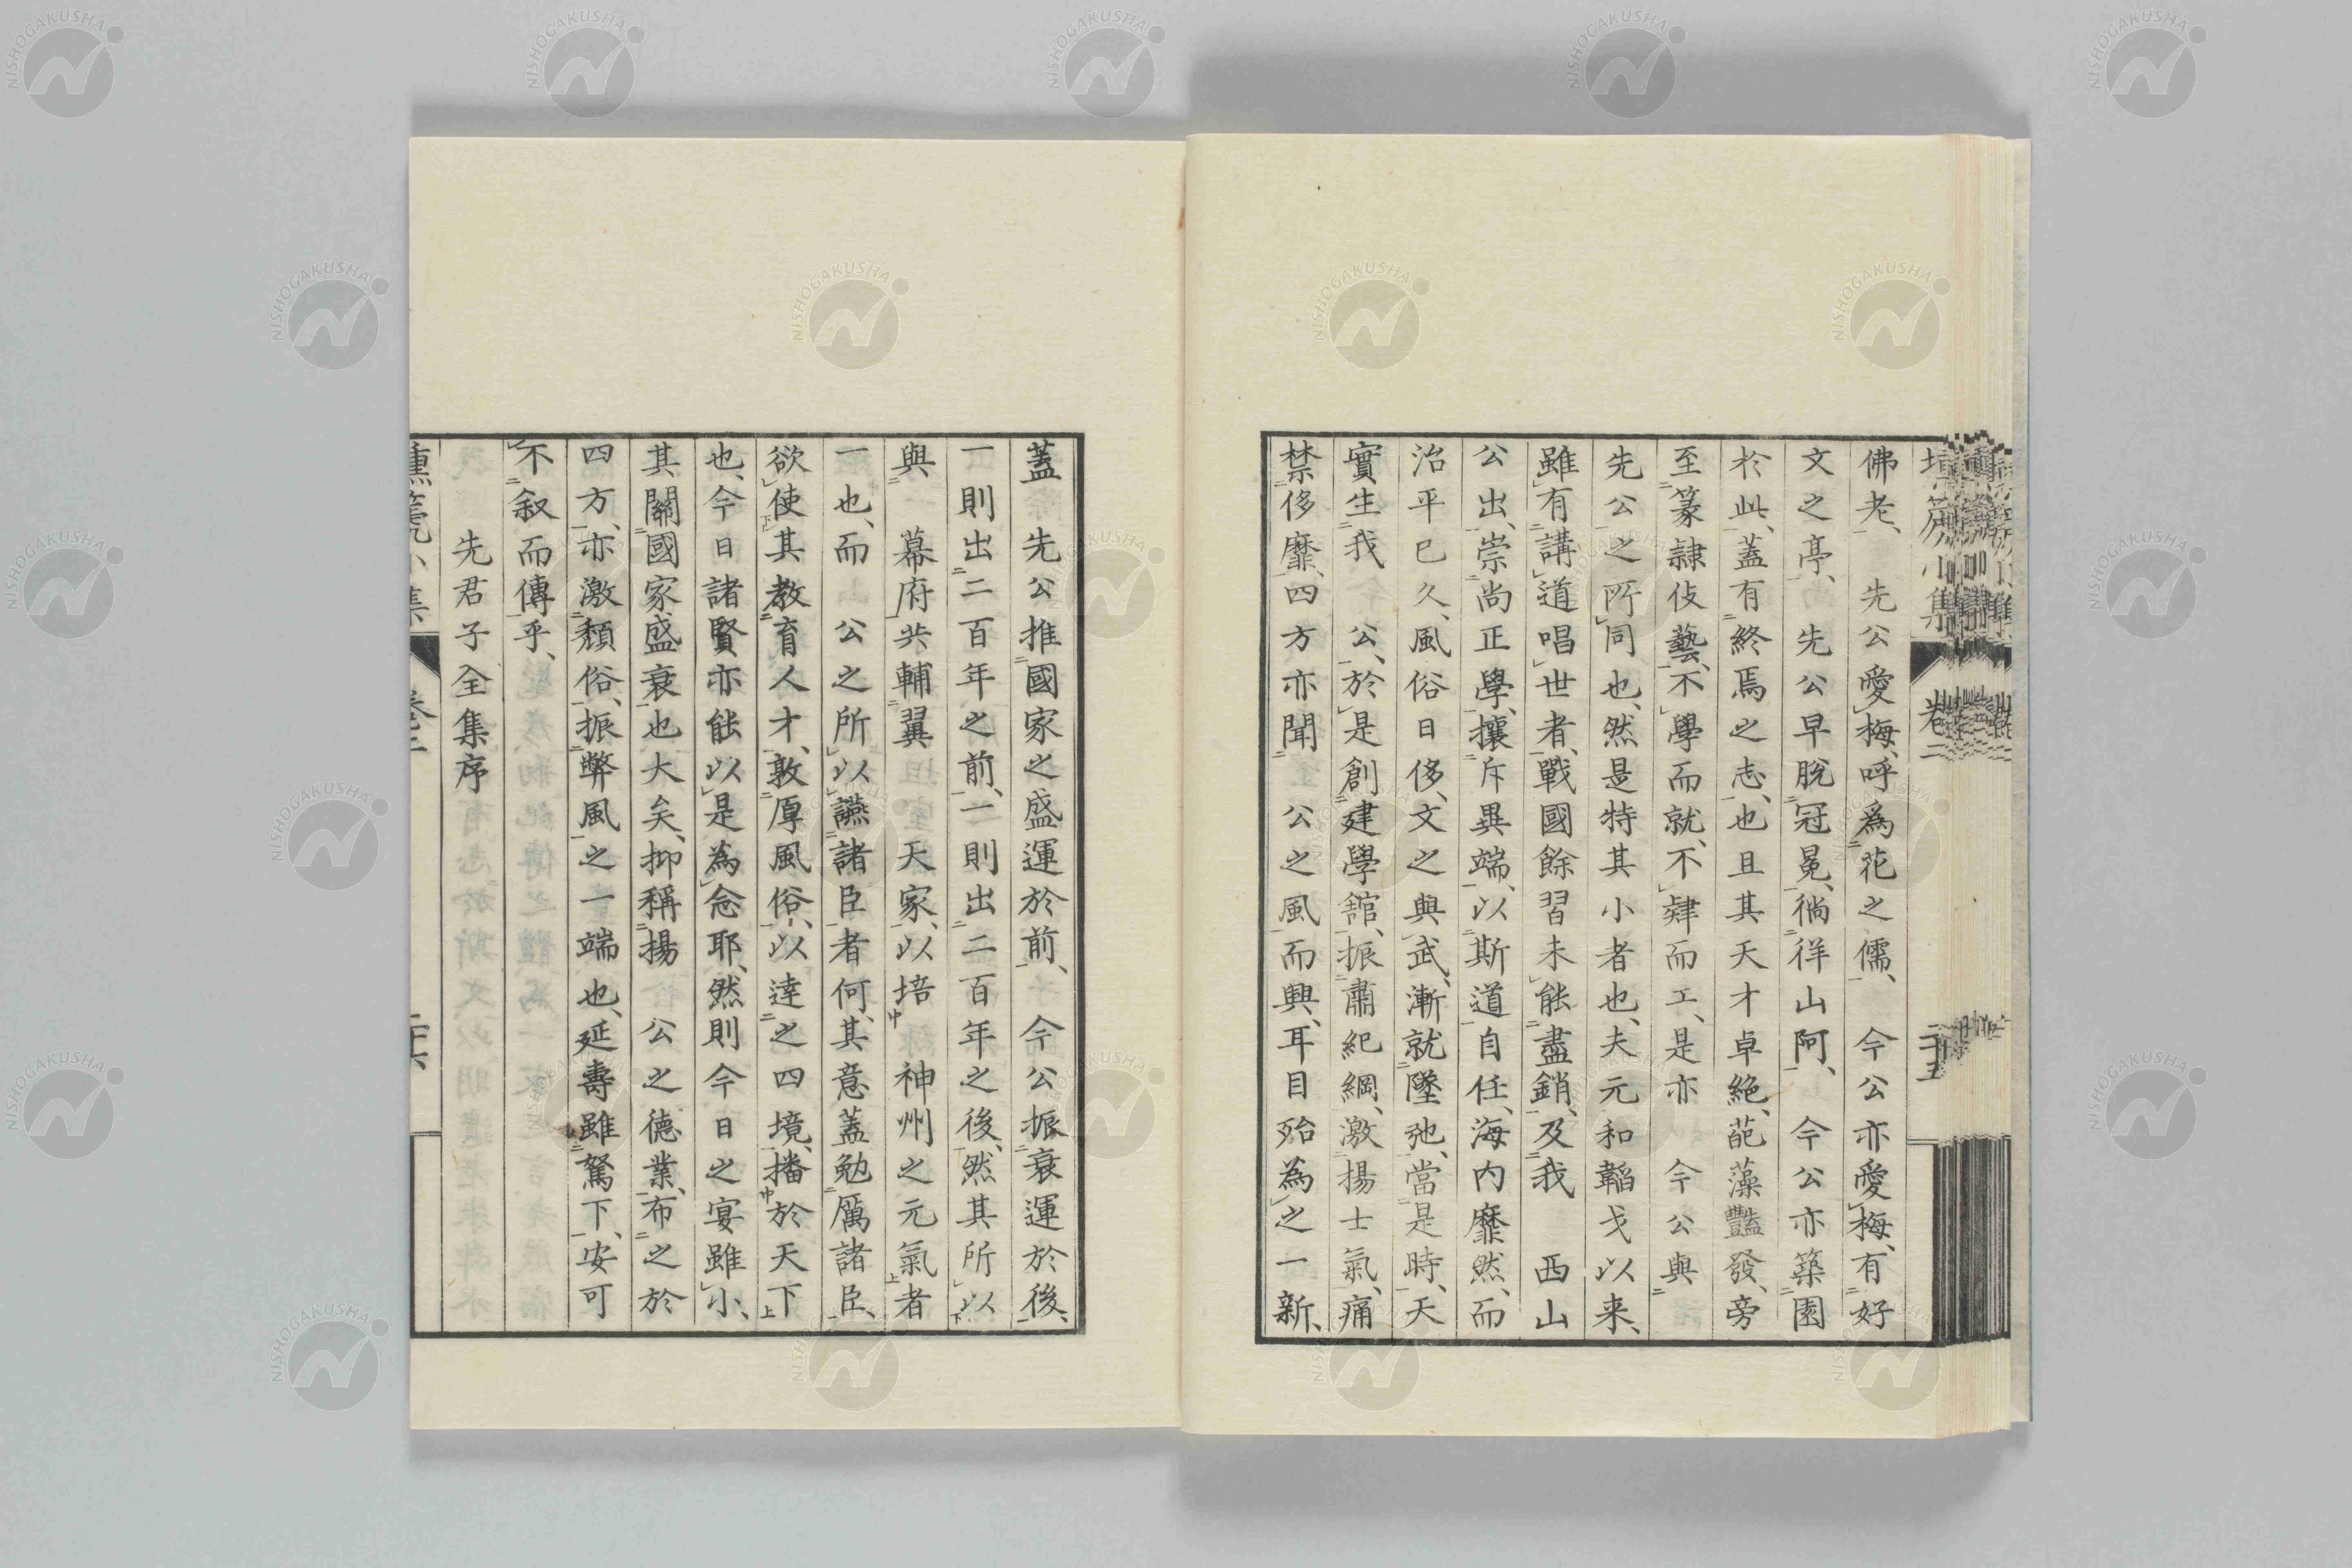 佛老、　先公愛梅、呼爲花之儒、　今公亦愛梅、有好
文之亭、　先公早脫冠冕、徜徉山阿、　今公亦築園
於此、蓋有終焉之志、也且其天才卓絶、葩藻豔發、旁
至篆隷伎藝、不學而就、不肄而工、是亦　今公與
先公之所同也、然是特其小者也、夫元和韜戈以来、
雖有講道唱世者、戰國餘習未能盡銷、及我　西山
公出、崇尚正學、攘斥異端、以斯道自任、海内靡然、而
治平已久、風俗日侈、文之與武、漸就墜弛、當是時、天
實生我　公、於是創建學館、振肅紀綱、激揚士氣、痛
禁侈靡、四方亦聞　公之風而興、耳目殆為之一新、
蓋　先公推國家之盛運於前、　今公振衰運於後、
一則出二百年之前、一則出二百年之後、然其所以
與　幕府共輔翼　天家、以培　神州之元氣者
一也、而　公之所以讌諸臣者何、其意蓋勉厲諸臣、
欲使其教育人才、敦厚風俗、以達之四境、播於天下
也、今日諸賢亦能以是為念耶、然則今日之宴雖小、
其關國家盛衰也大矣、抑稱揚　公之德業、布之於
四方、亦激頽俗、振弊風之一端也、延壽雖駑下、安可
不叙而傳乎、
先君子全集序
卷二
二十五
NISHOGAKUSHA